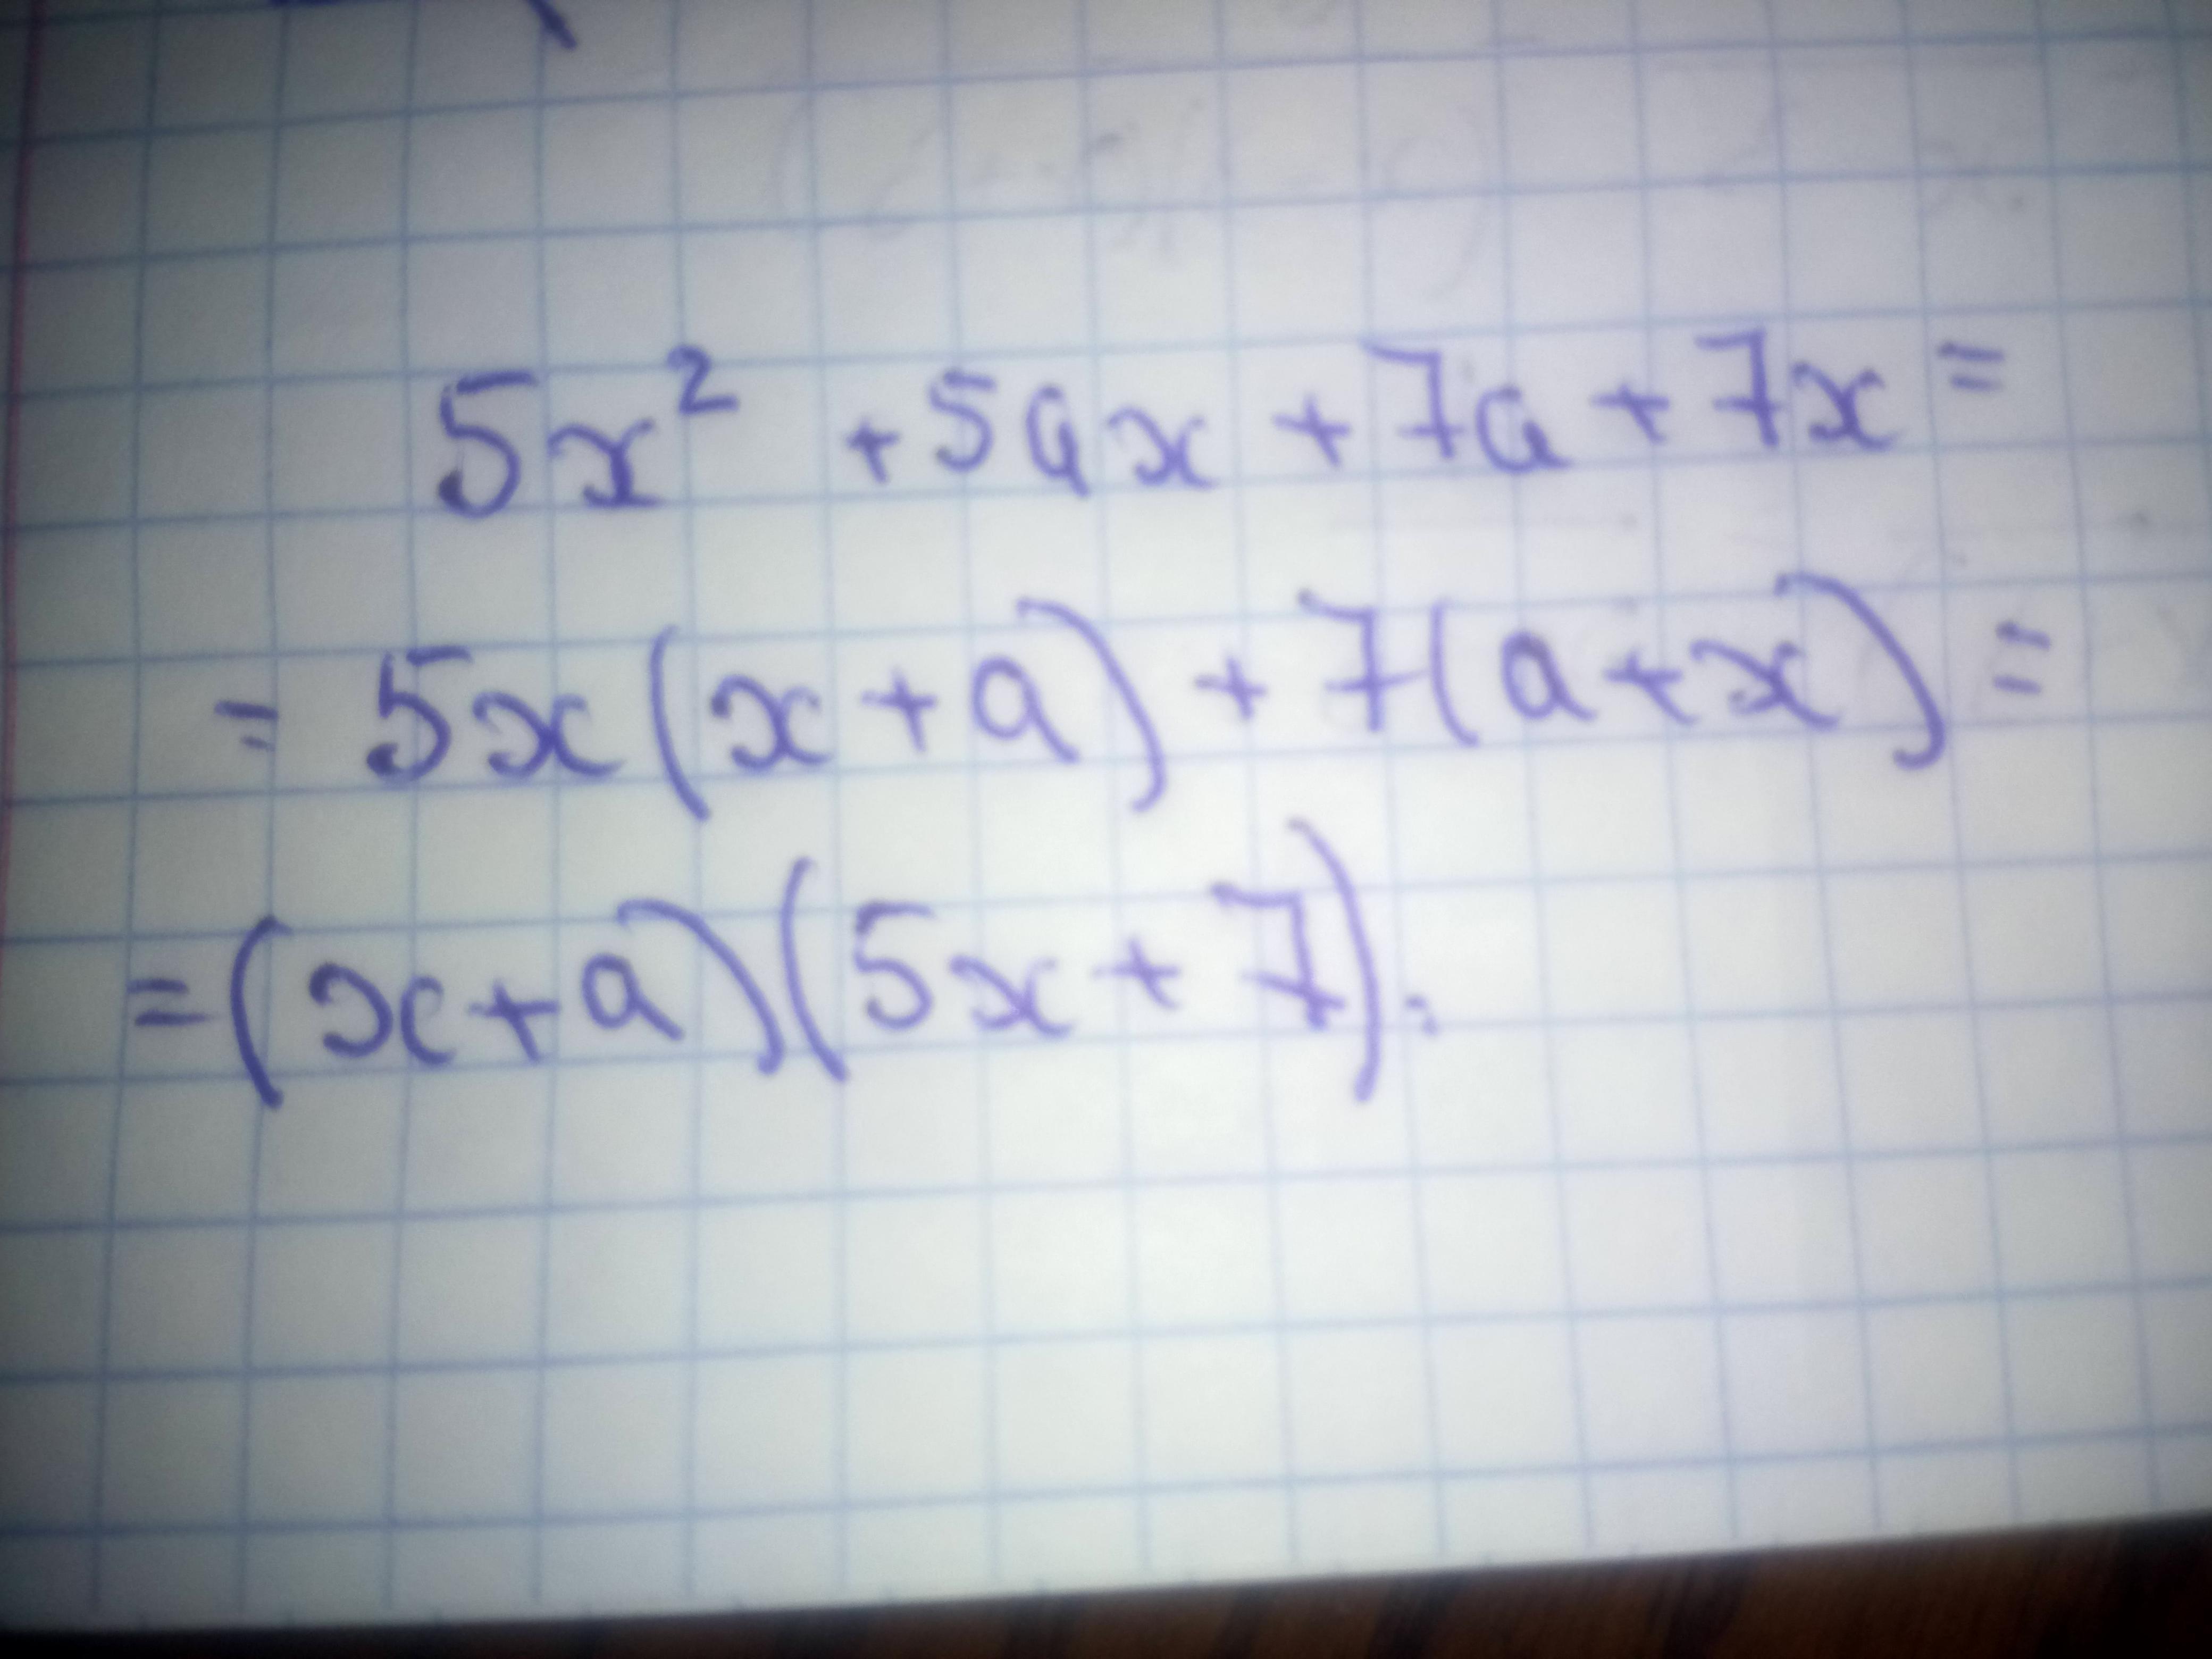 5x² + 5ax + 7a + 7x =
= 5x(x + a) + 7(a + x) =
= (x + a)(5x + 7).